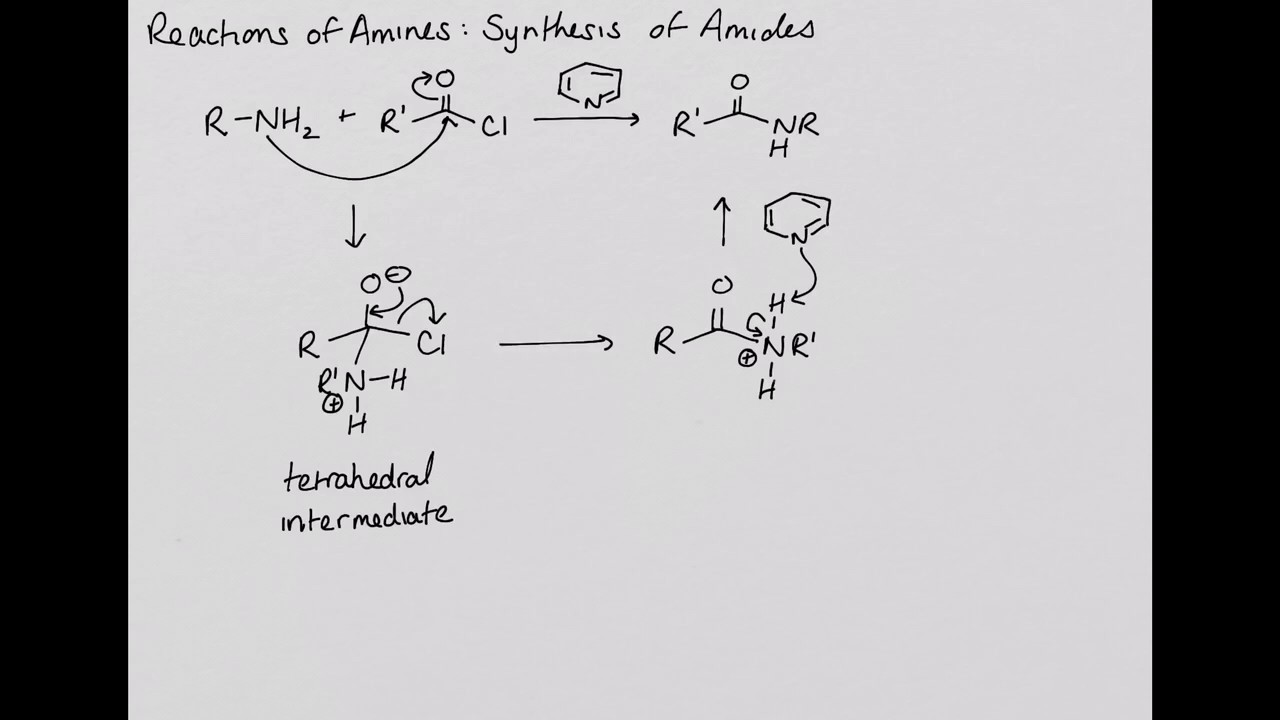 Reactions of Amines: Synthesis of Amides
R-NH₂ + R' O Cl N R' O NR H
O ⊖ R Cl R'N-H ⊕ H
N O R H ⊕ NR' H
tetrahedral
intermediate